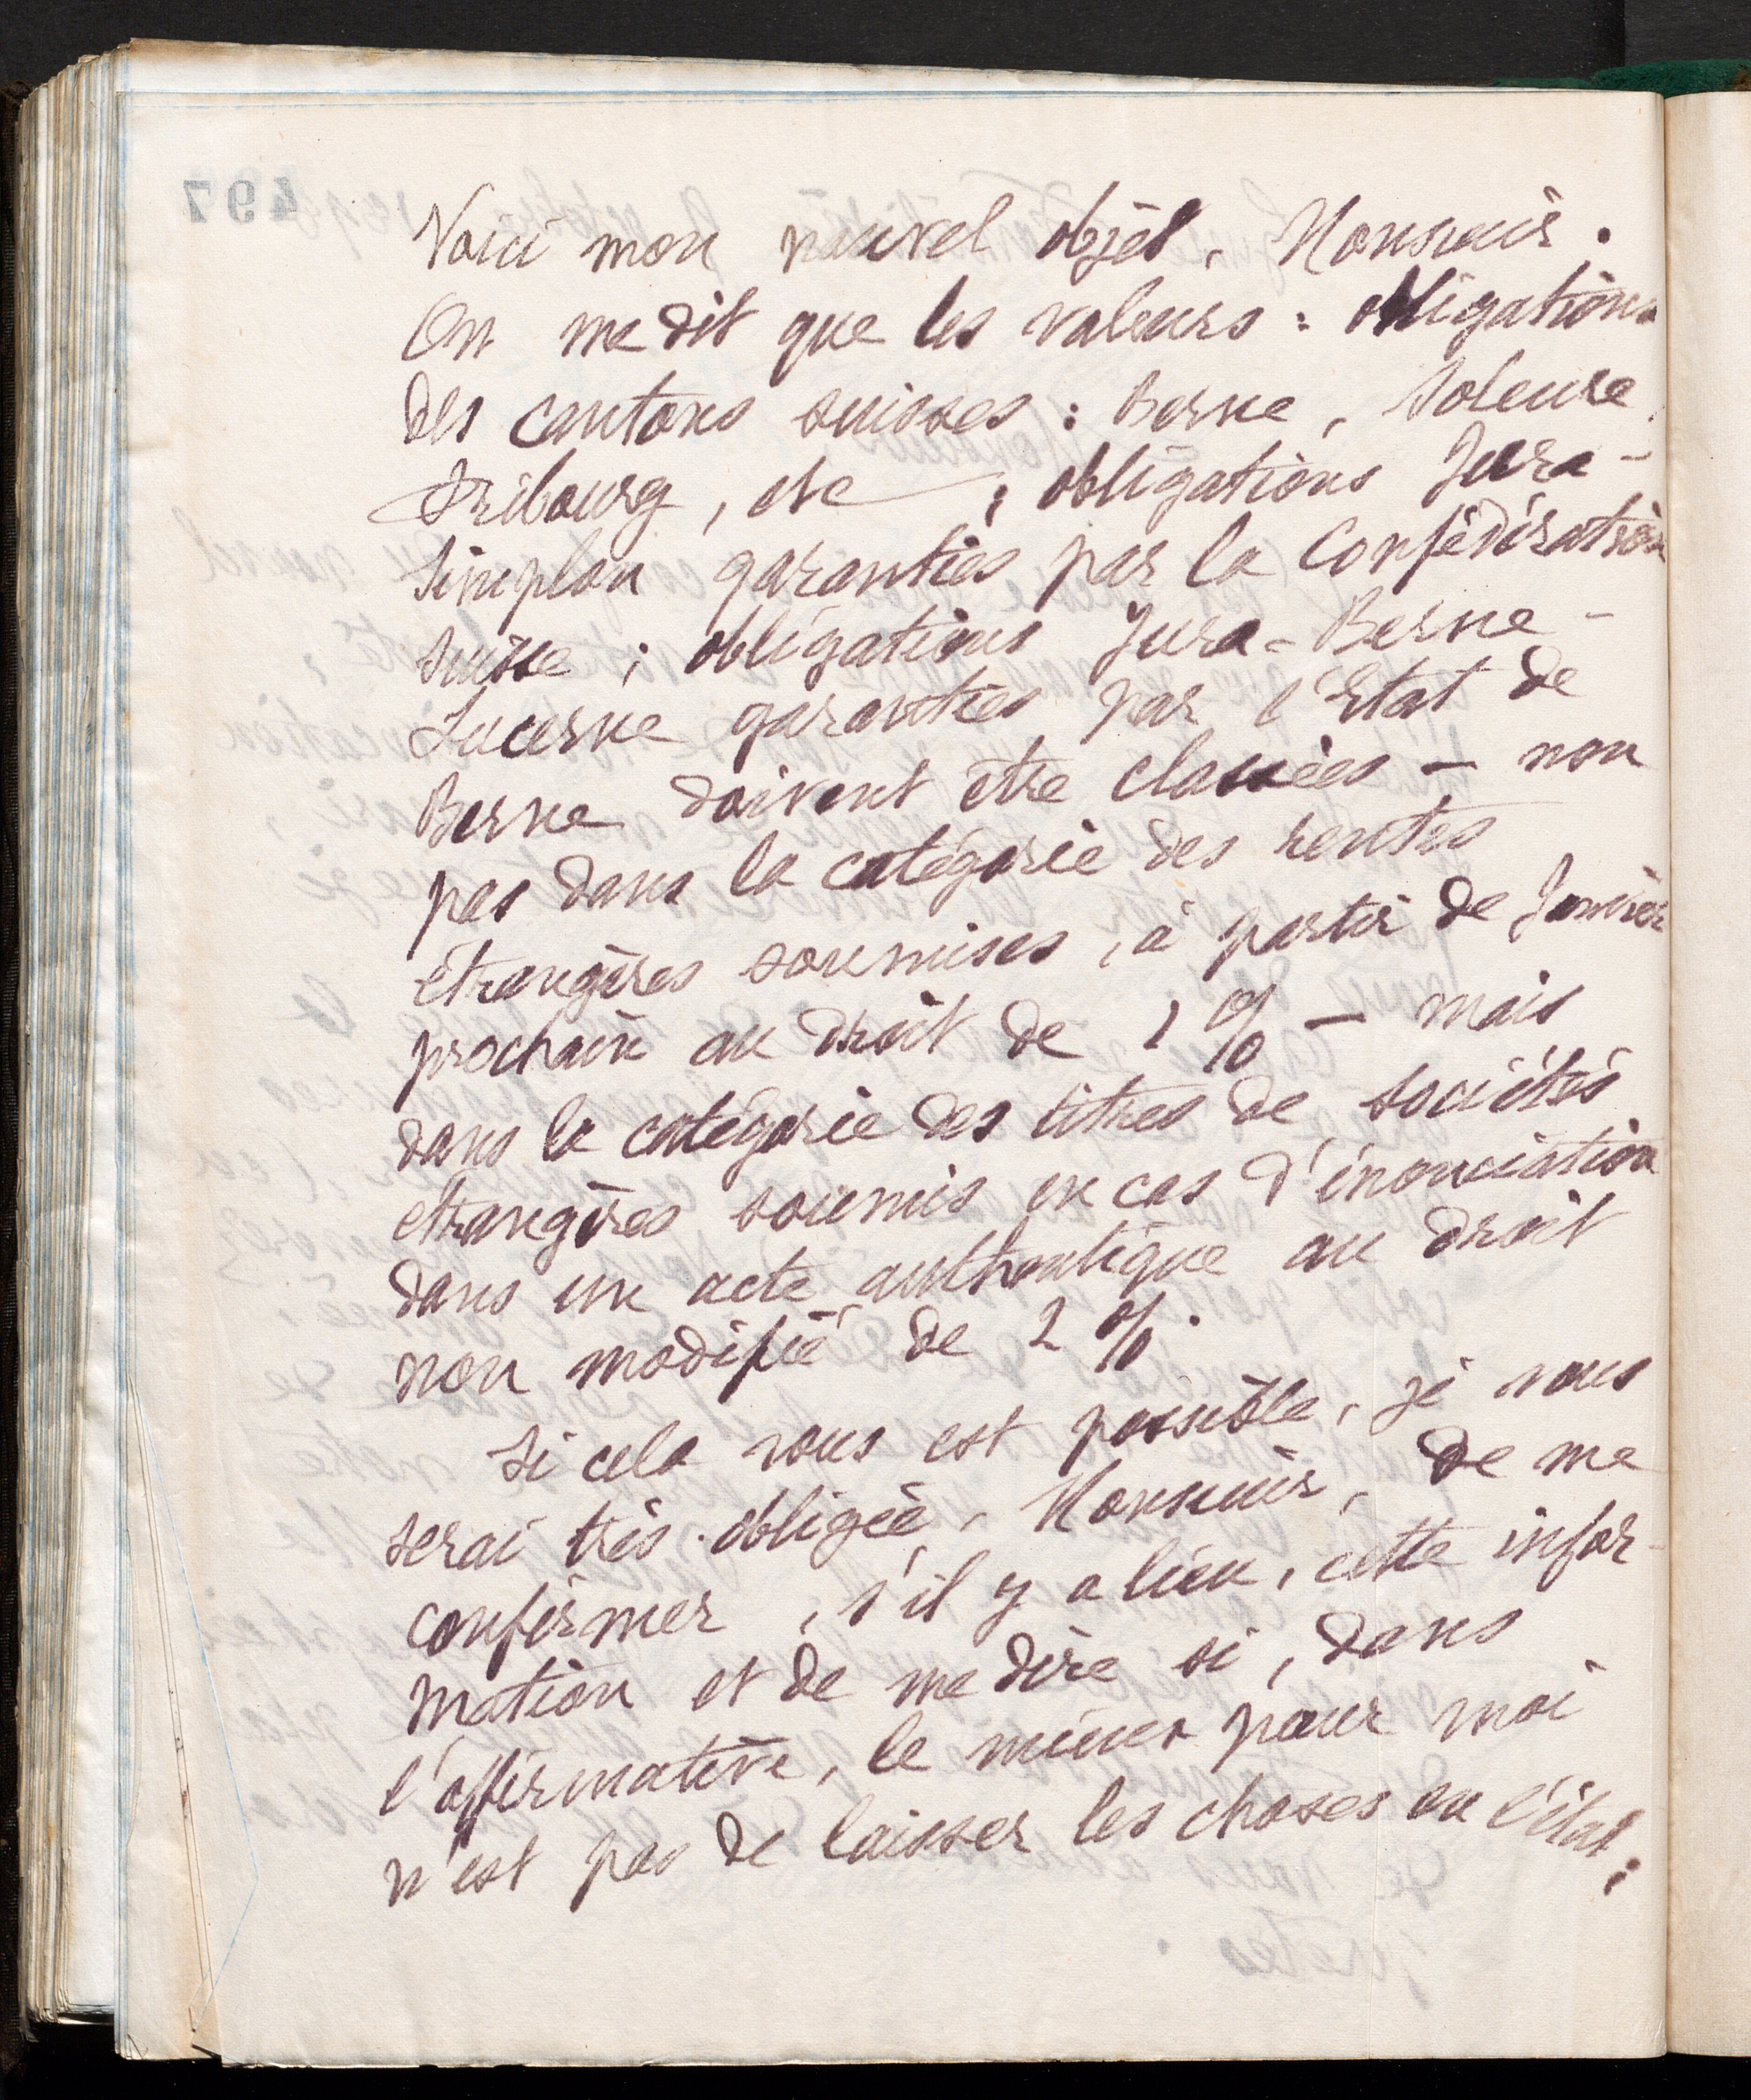 Voici mon nouvel objet, Monsieur.
On me dit que les valeurs : obligations
des cantons suisses : Berne, Soleure,
Fribourg, etc ; obligations Jura-
Simplon garanties par la Confédération
suisse ; obligations Jura-Berne-
Lucerne garanties par l'Etat de
Berne doivent être classées — non
pas dans la catégorie des rentes
étrangères soumises, à partir de Janvier
prochain au droit de 1 % — mais
dans la catégorie des titres de sociétés
étrangères soumis en cas d'énonciation
dans un acte authentique au droit
non modifié de 2 %.
Si cela vous est possible, je vous
serai très-obligée, Monsieur, de me
confirmer, s'il y a lieu, cette infor-
mation et de me dire si, dans
l'affirmative, le mieux pour moi
n'est pas de laisser les choses en l'état ;